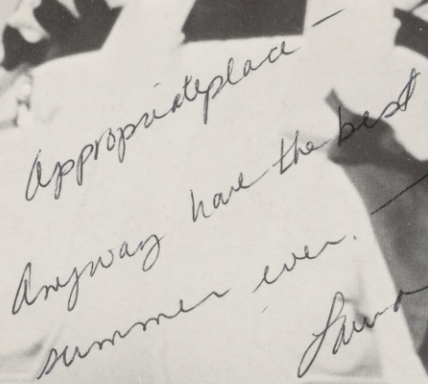 Appropriate place —
Anyway have the best
summer ever. —
Laura